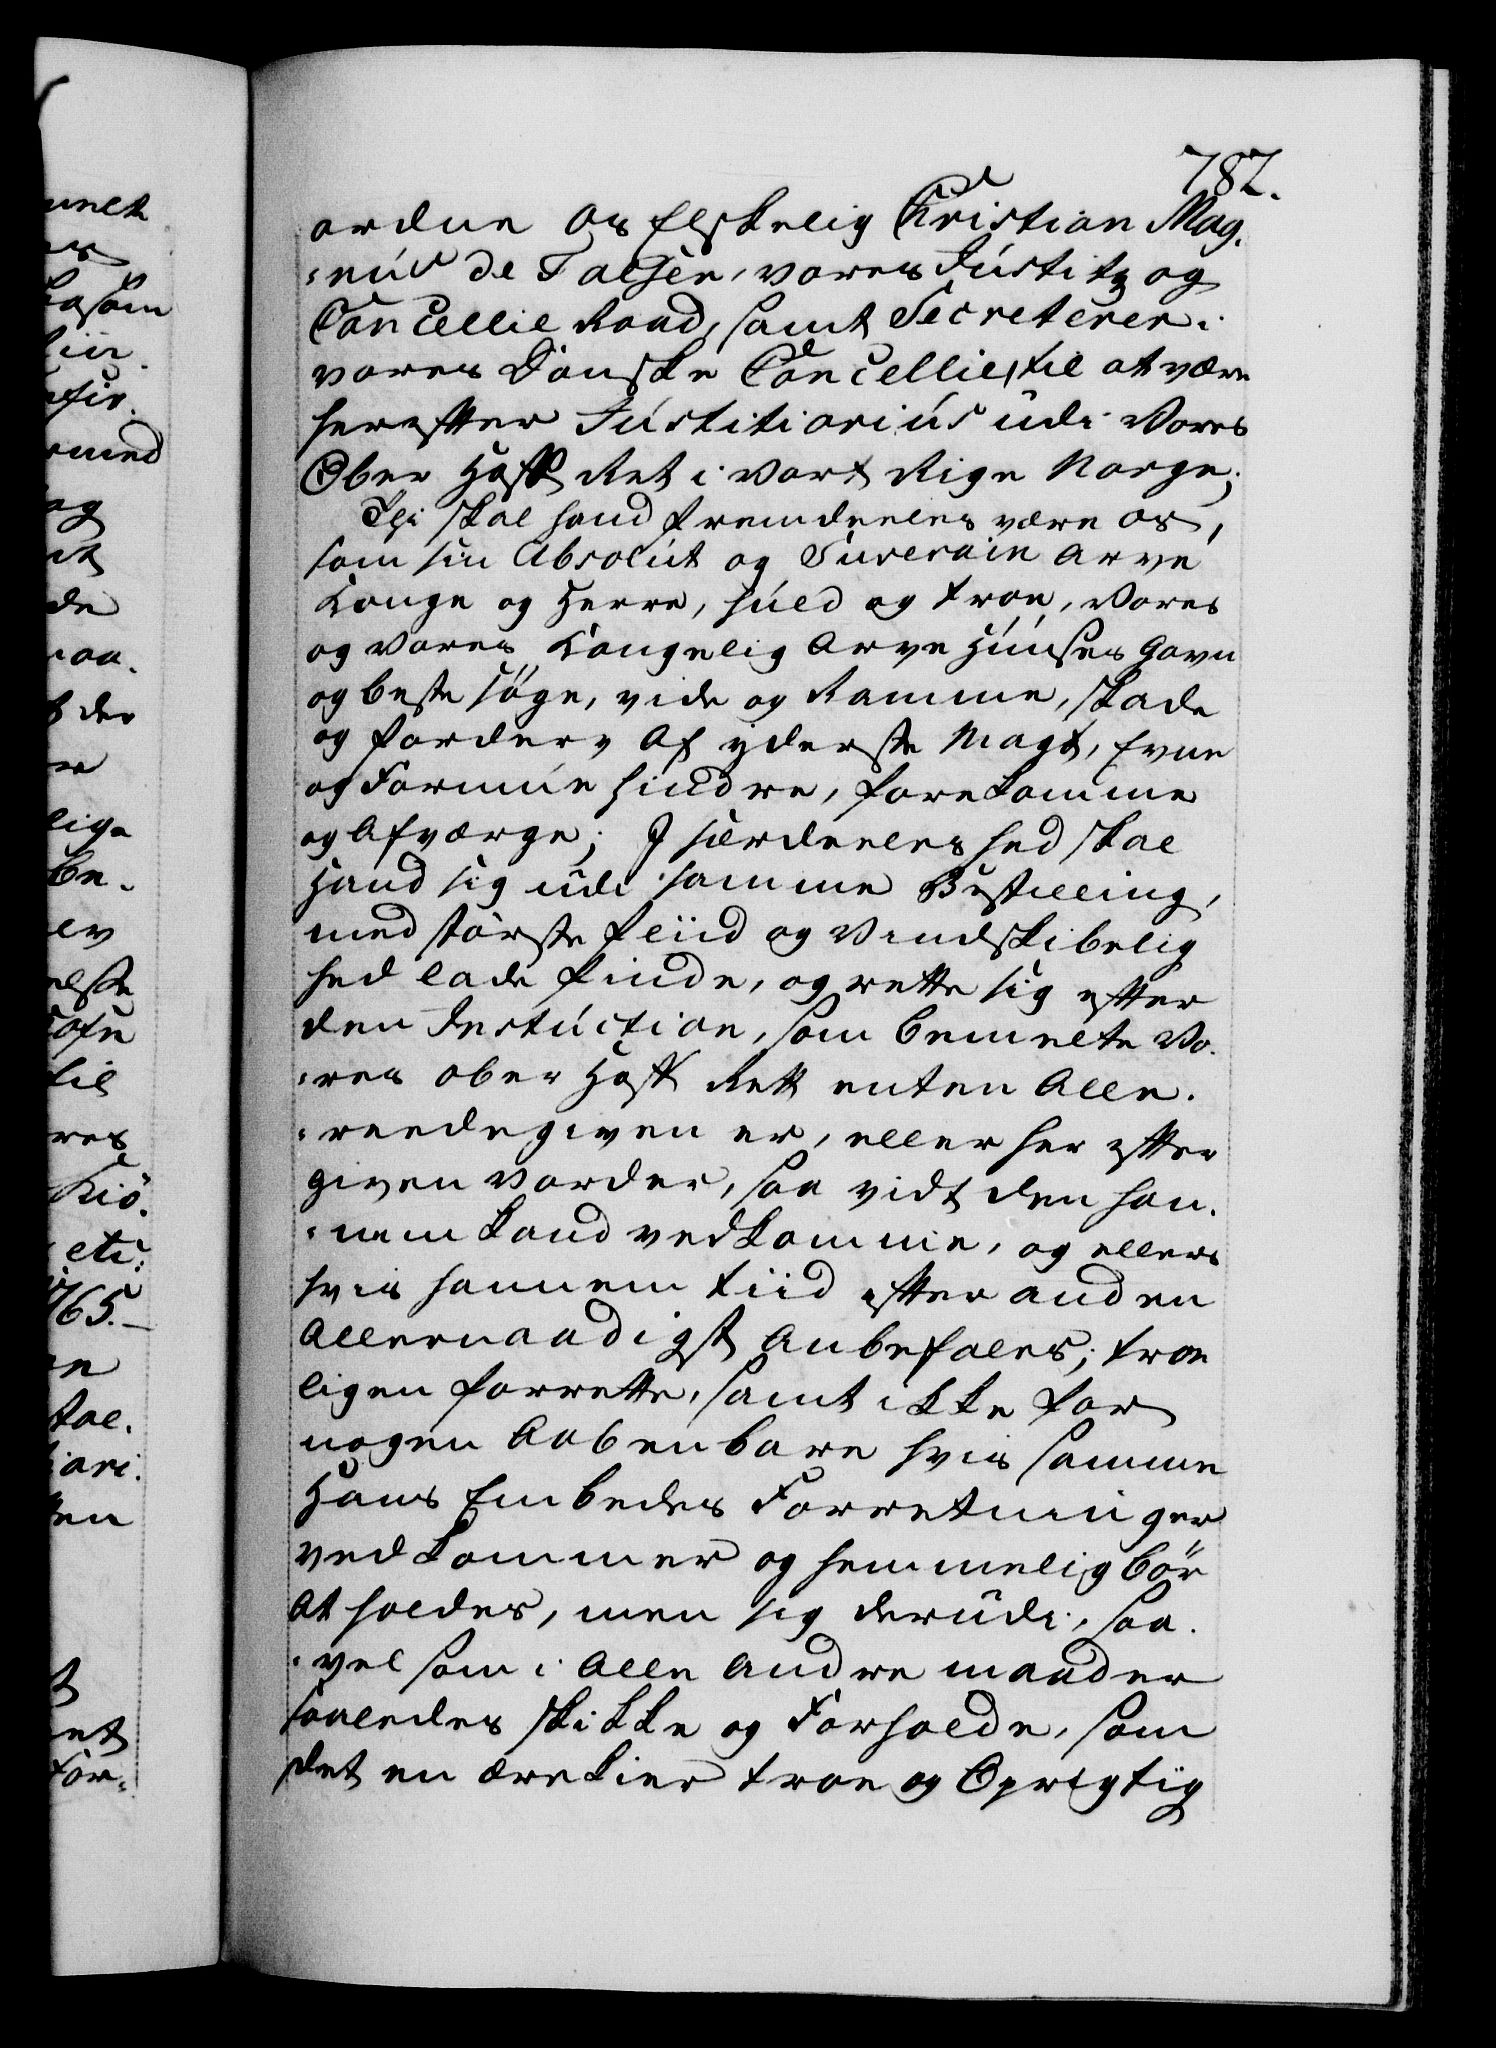 782.
ordne Os Elskelig Christian Mag.
:nús de Falsen, vores Jústitz og
Cancellie Raad, samt Secreterer i
vores Danske Cancellie, til at være
herefter Jústitiariús udi Vores
Ober Hoff Ret i Vort Rige Norge;
Thi skal hand fremdeeles være os,
som sin Absolút og Suverain Arve
Konge og Herre, húld og troe, Vores
og Vores Kongelig Arve Húúses Gavn
og beste søge, vide og Ramme, skade
og forderv Af yderste Magt, Evne
og Formúe hindre, forekomme
og Afværge; I særdeeleshed skal
Hand sig udi samme Bestilling,
med største fliid og Vindskibelig
hed lade finde, og rette sig efter
den Instúction, som bemelte Vo.
:res ober Hoff Rett enten Alle.
:reede given er, eller her efter
given vorder, saa vidt den han.
:nem kand vedkomme, og ellers
hvis hannem tiid efter anden
Allernaadigst Anbefales; troe
ligen forrette, samt ikke for
nogen Aabenbare hvis samme
Hans Embedes Forretninger
vedkommer og hemmelig bør
At holdes, men sig derudi, saa.
:vel som i Alle Andre maader
saaledes skikke og Forholde, som
det en ærekier troe og Oprigtig